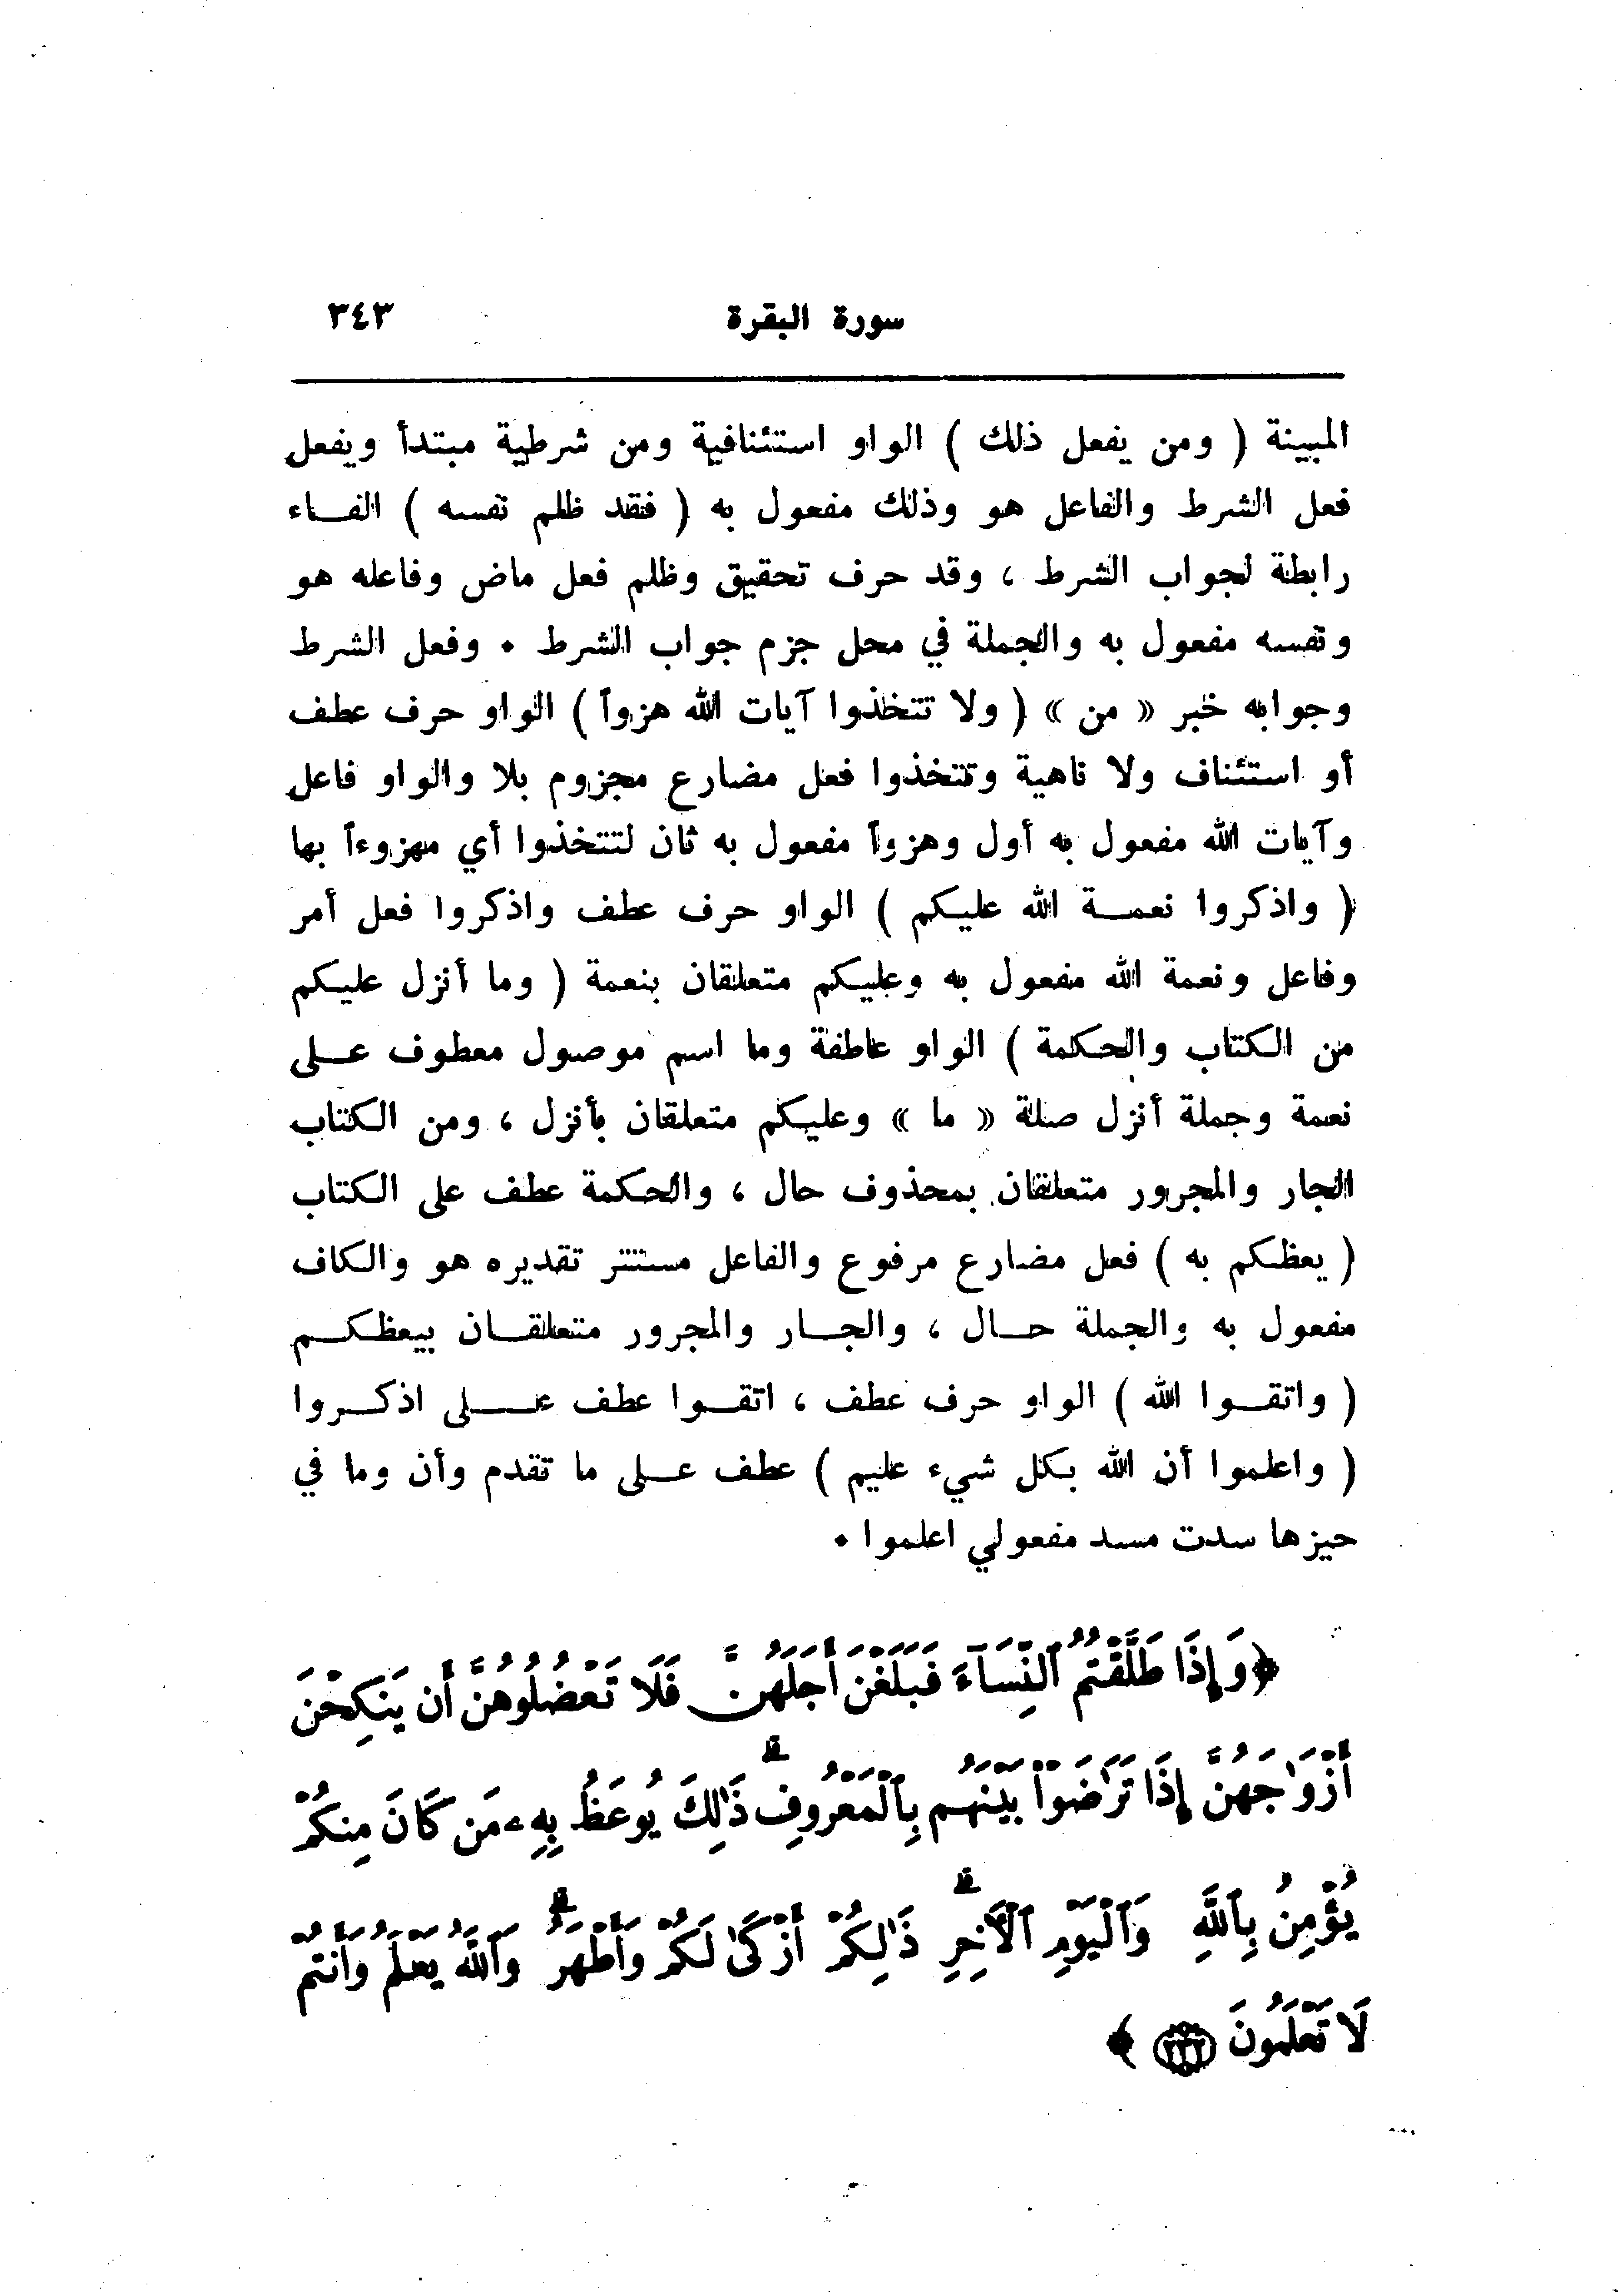 سورة البقرة ٣٤٣
المبينة ( ومن يفعل ذلك ) الواو استئنافية ومن شرطية مبتدأ ويفعل
فعل الشرط والفاعل هو وذلك مفعول به ( فقد ظلم نفسه ) الفاء
رابطة لجواب الشرط ، وقد حرف تحقيق وظلم فعل ماض وفاعله هو
ونفسه مفعول به والجملة في محل جزم جواب الشرط . وفعل الشرط
وجوابه خبر « من » ( ولا تتخذوا آيات الله هزواً ) الواو حرف عطف
أو استئناف ولا ناهية وتتخذوا فعل مضارع مجزوم بلا والواو فاعل
وآيات الله مفعول به أول وهزواً مفعول به ثان لتتخذوا أي مهزوءاً بها
( واذكروا نعمة الله عليكم ) الواو حرف عطف واذكروا فعل أمر
وفاعل ونعمة الله مفعول به وعليكم متعلقان بنعمة ( وما أنزل عليكم
من الكتاب والحكمة ) الواو عاطفة وما اسم موصول معطوف على
نعمة وجملة أنزل صلة « ما » وعليكم متعلقان بأنزل ، ومن الكتاب
الجار والمجرور متعلقان بمحذوف حال ، والحكمة عطف على الكتاب
( يعظكم به ) فعل مضارع مرفوع والفاعل مستتر تقديره هو والكاف
مفعول به والجملة حال ، والجار والمجرور متعلقان بيعظكم
( واتقوا الله ) الواو حرف عطف ، اتقوا عطف على اذكروا
( واعلموا أن الله بكل شيء عليم ) عطف على ما تقدم وأن وما في
حيزها سدت مسد مفعولي اعلموا .
﴿وَإِذَا طَلَّقْتُمُ ٱلنِّسَآءَ فَبَلَغْنَ أَجَلَهُنَّ فَلَا تَعْضُلُوهُنَّ أَن يَنكِحْنَ
أَزْوَٰجَهُنَّ إِذَا تَرَٰضَوْا۟ بَيْنَهُم بِٱلْمَعْرُوفِ ۗ ذَٰلِكَ يُوعَظُ بِهِۦ مَن كَانَ مِنكُمْ
يُؤْمِنُ بِٱللَّهِ وَٱلْيَوْمِ ٱلْـَٔاخِرِ ۗ ذَٰلِكُمْ أَزْكَىٰ لَكُمْ وَأَطْهَرُ ۗ وَٱللَّهُ يَعْلَمُ وَأَنتُمْ
لَا تَعْلَمُونَ ٢٣٢ ﴾